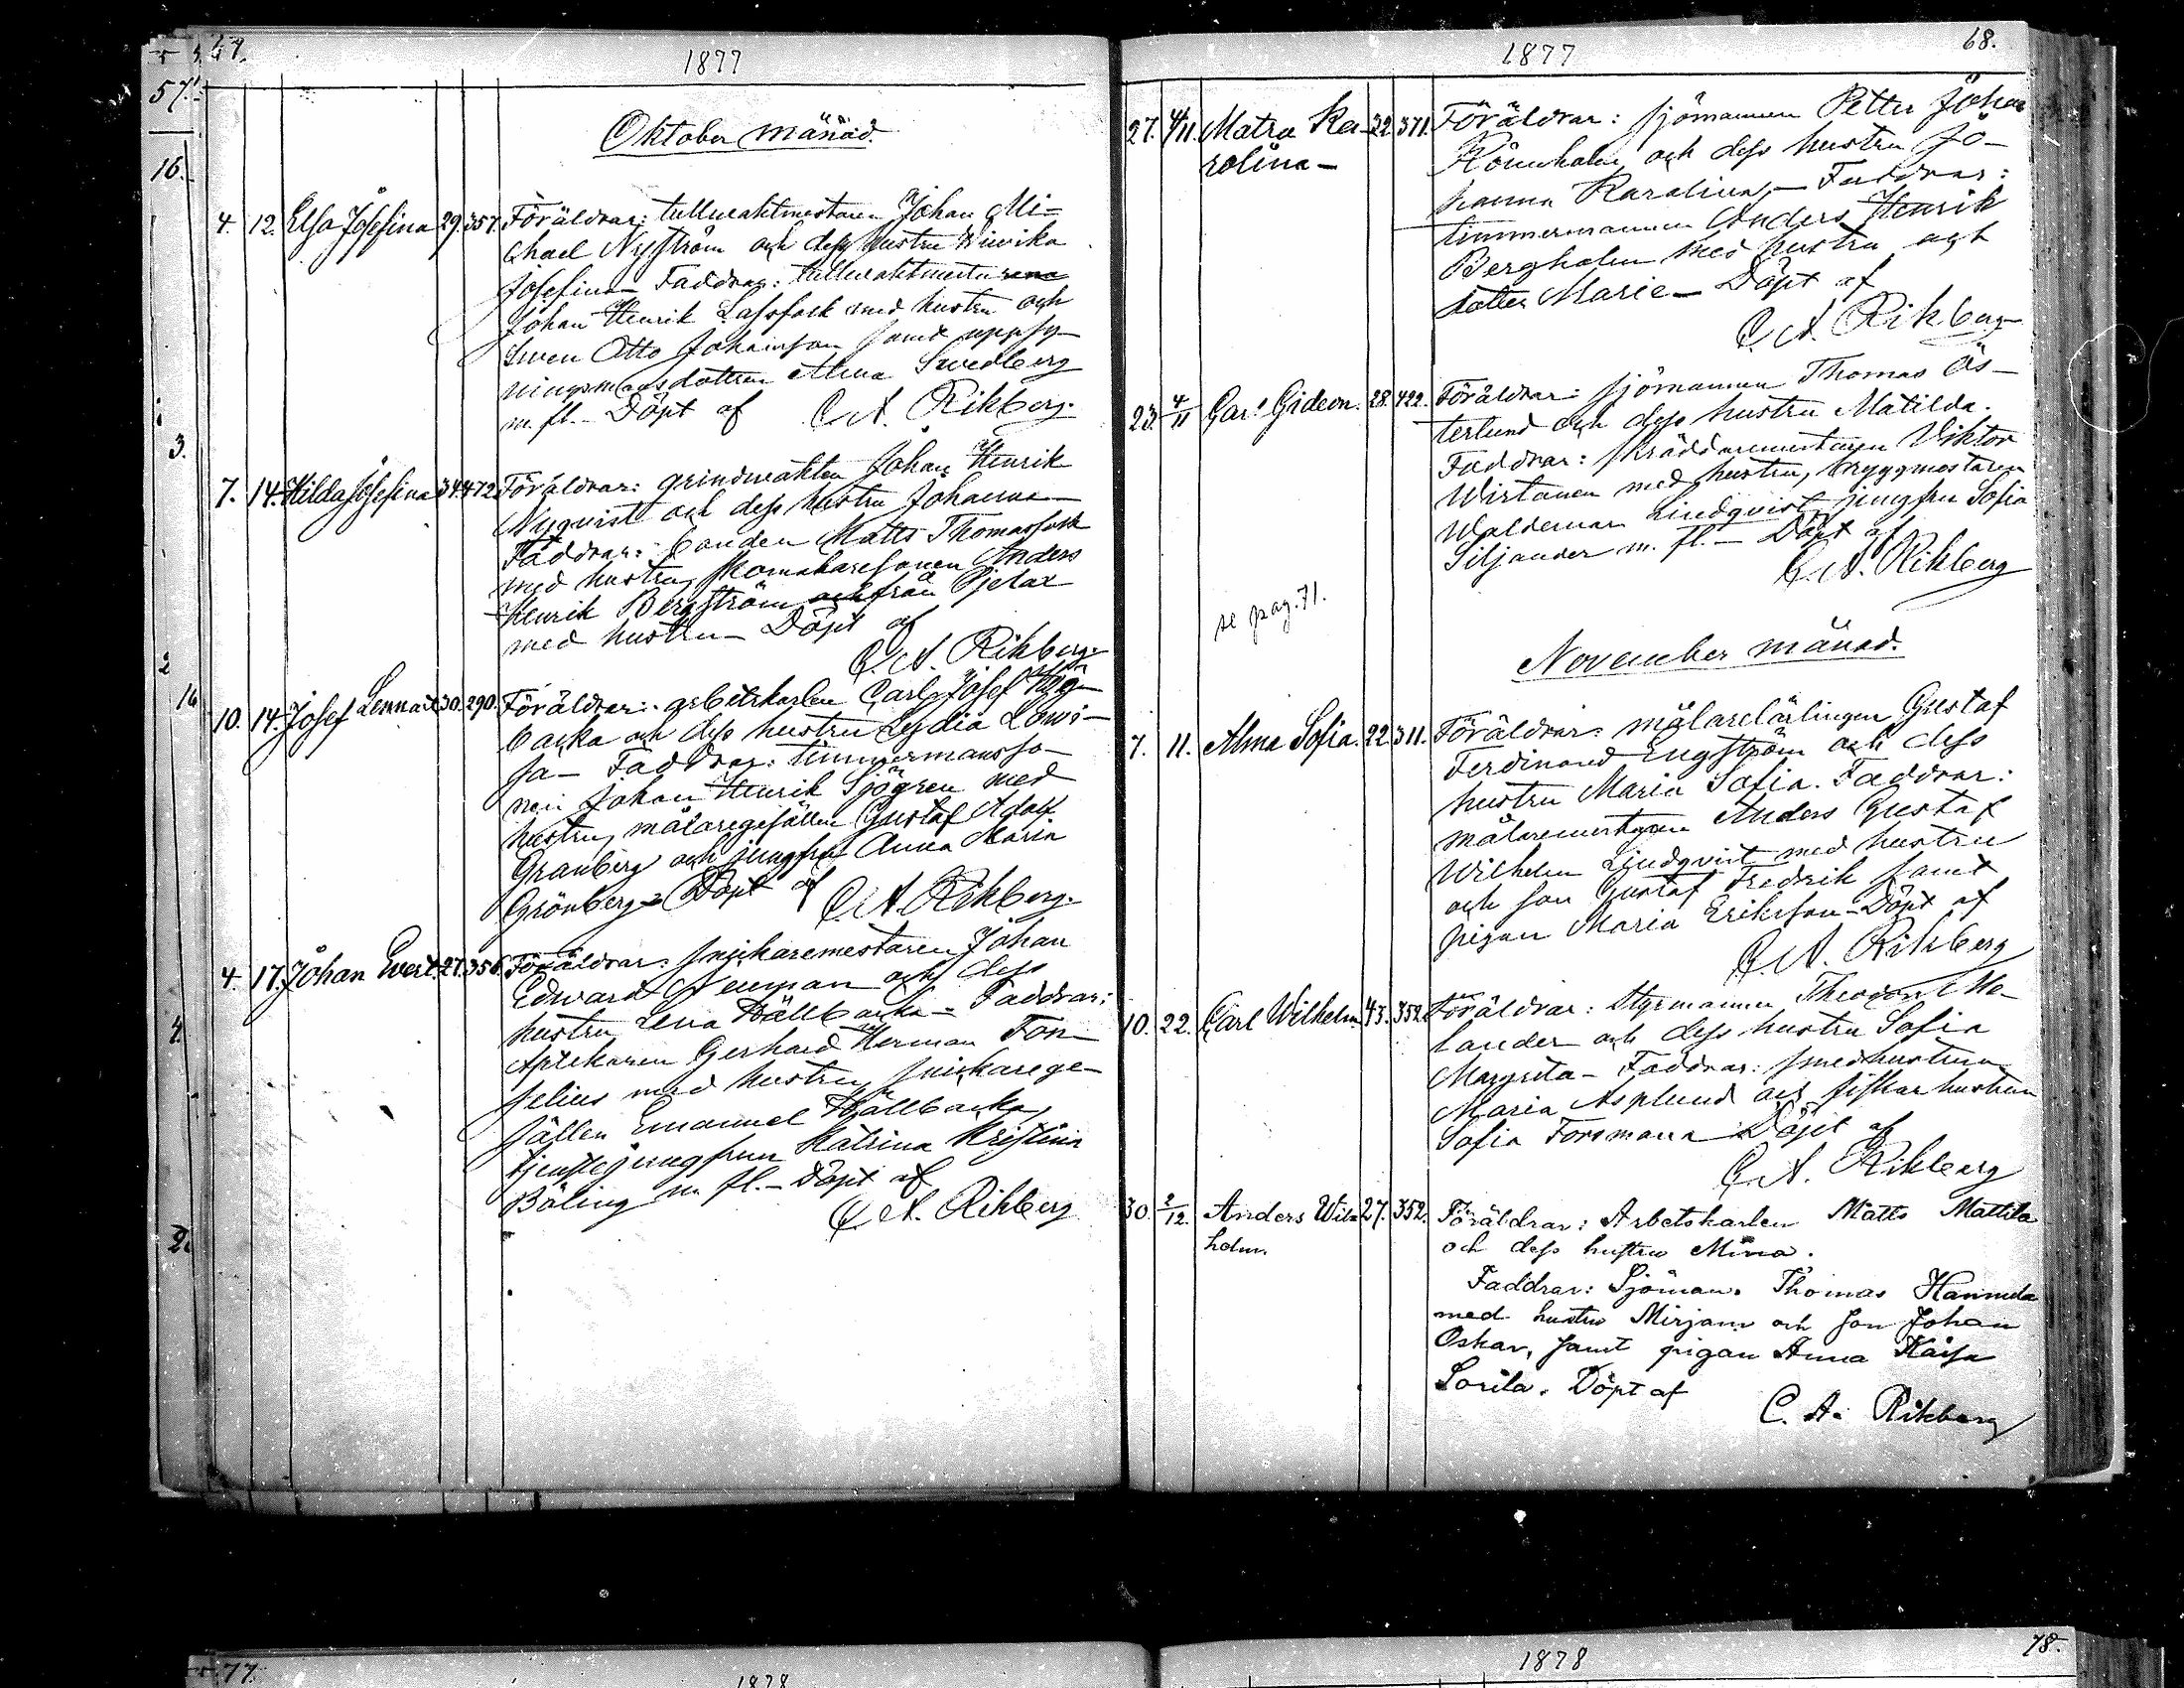 67.
1877
57.
16.
3.
2
16
4.
2.
Oktober månad.
4. 12. Elsa Josefina 29. 357. Föräldrar: tullvaktmästaren Johan Mi-
chael Nyström och dess hustru Ulrika
Josefina – Faddrar: tullvaktmästarena
Johan Henrik Lassfolk med hustru och
Sven Otto Johansson samt uppsy-
ningsmansdottern Alma Svedberg
m. fl. – Döpt af C. A. Rikberg.
7. 14. Hilda Josefina 34. 472. Föräldrar: grindvakten Johan Henrik
Nyqvist och dess hustru Johanna –
Faddrar: bonden Matts Thomasfolk
med hustru, skomakaresonen Anders
Henrik Bergström och från Pjelax
med hustru – Döpt af
C. A. Rikberg.
10. 14. Josef Lennart 30. 290. Föräldrar: arbetskarlen Carl Josef Hög-
backa och dess hustru Lydia Lowi-
sa – Faddrar: timmermansso-
nen Johan Henrik Sjögren med
hustru, målaregesällen Gustaf Adolf
Granberg och jungfru Anna Maria
Grönberg – Döpt af C. A. Rikberg.
4. 17. Johan Evert. 27. 356. Föräldrar: snickaremestaren Johan
Edward Neuman och dess
hustru Lena Hällbacka – Faddrar:
Aptekaren Gerhard Herman Fon-
selius med hustru, snickarege-
sällen Emanuel Hällbacka,
tjenstejungfrun Katrina Kristina
Böling m. fl. – Döpt af
C. A. Rikberg
1877
68.
27. 4/11. Matra Ka- 32. 371. Föräldrar: sjömannen Petter Johan
rolina – Rönnholm och dess hustru Jo-
hanna Karolina – Faddrar:
timmermannen Anders Henrik
Bergholm med hustru och
dotter Marie – Döpt af
C. A. Rikberg
23. 4/11 Carl Gideon. 28. 422. Föräldrar: sjömannen Thomas Ös-
terlund och dess hustru Matilda.
Faddrar: skräddaremestaren Viktor
Wirtanen med hustru, byggmästaren
Waldemar Lindqvist, jungfru Sofia
Siljander m. fl. – Döpt af
C. A. Rikberg
se pag. 71.
November månad.
7. 11. Alma Sofia. 22. 311. Föräldrar: målarelärlingen Gustaf
Ferdinand Engström och dess
hustru Maria Sofia. Faddrar:
målaremestaren Anders Gustaf
Wilhelm Lindqvist med hustru
och son Gustaf Fredrik samt
pigan Maria Eriksson – Döpt af
C. A. Rikberg
10. 22. Carl Wilhelm 43. 352. Föräldrar: Styrmannen Theodor Me-
lander och dess hustru Sofia
Margreta – Faddrar: smedhustrun
Maria Asplund och fiskarhustrun
Sofia Forsman. Döpt af
C. A. Rikberg
30. 2/12. Anders Wil- 27. 352. Föräldrar: Arbetskarlen Matts Mattila
helm. och dess hustru Mina.
Faddrar: Sjöman. Thomas Hannula
med hustru Mirjam och son Johan
Oskar, samt pigan Anna Kaisa
Sorila. Döpt af
C. A. Rikberg
77.
1878
1878
78.